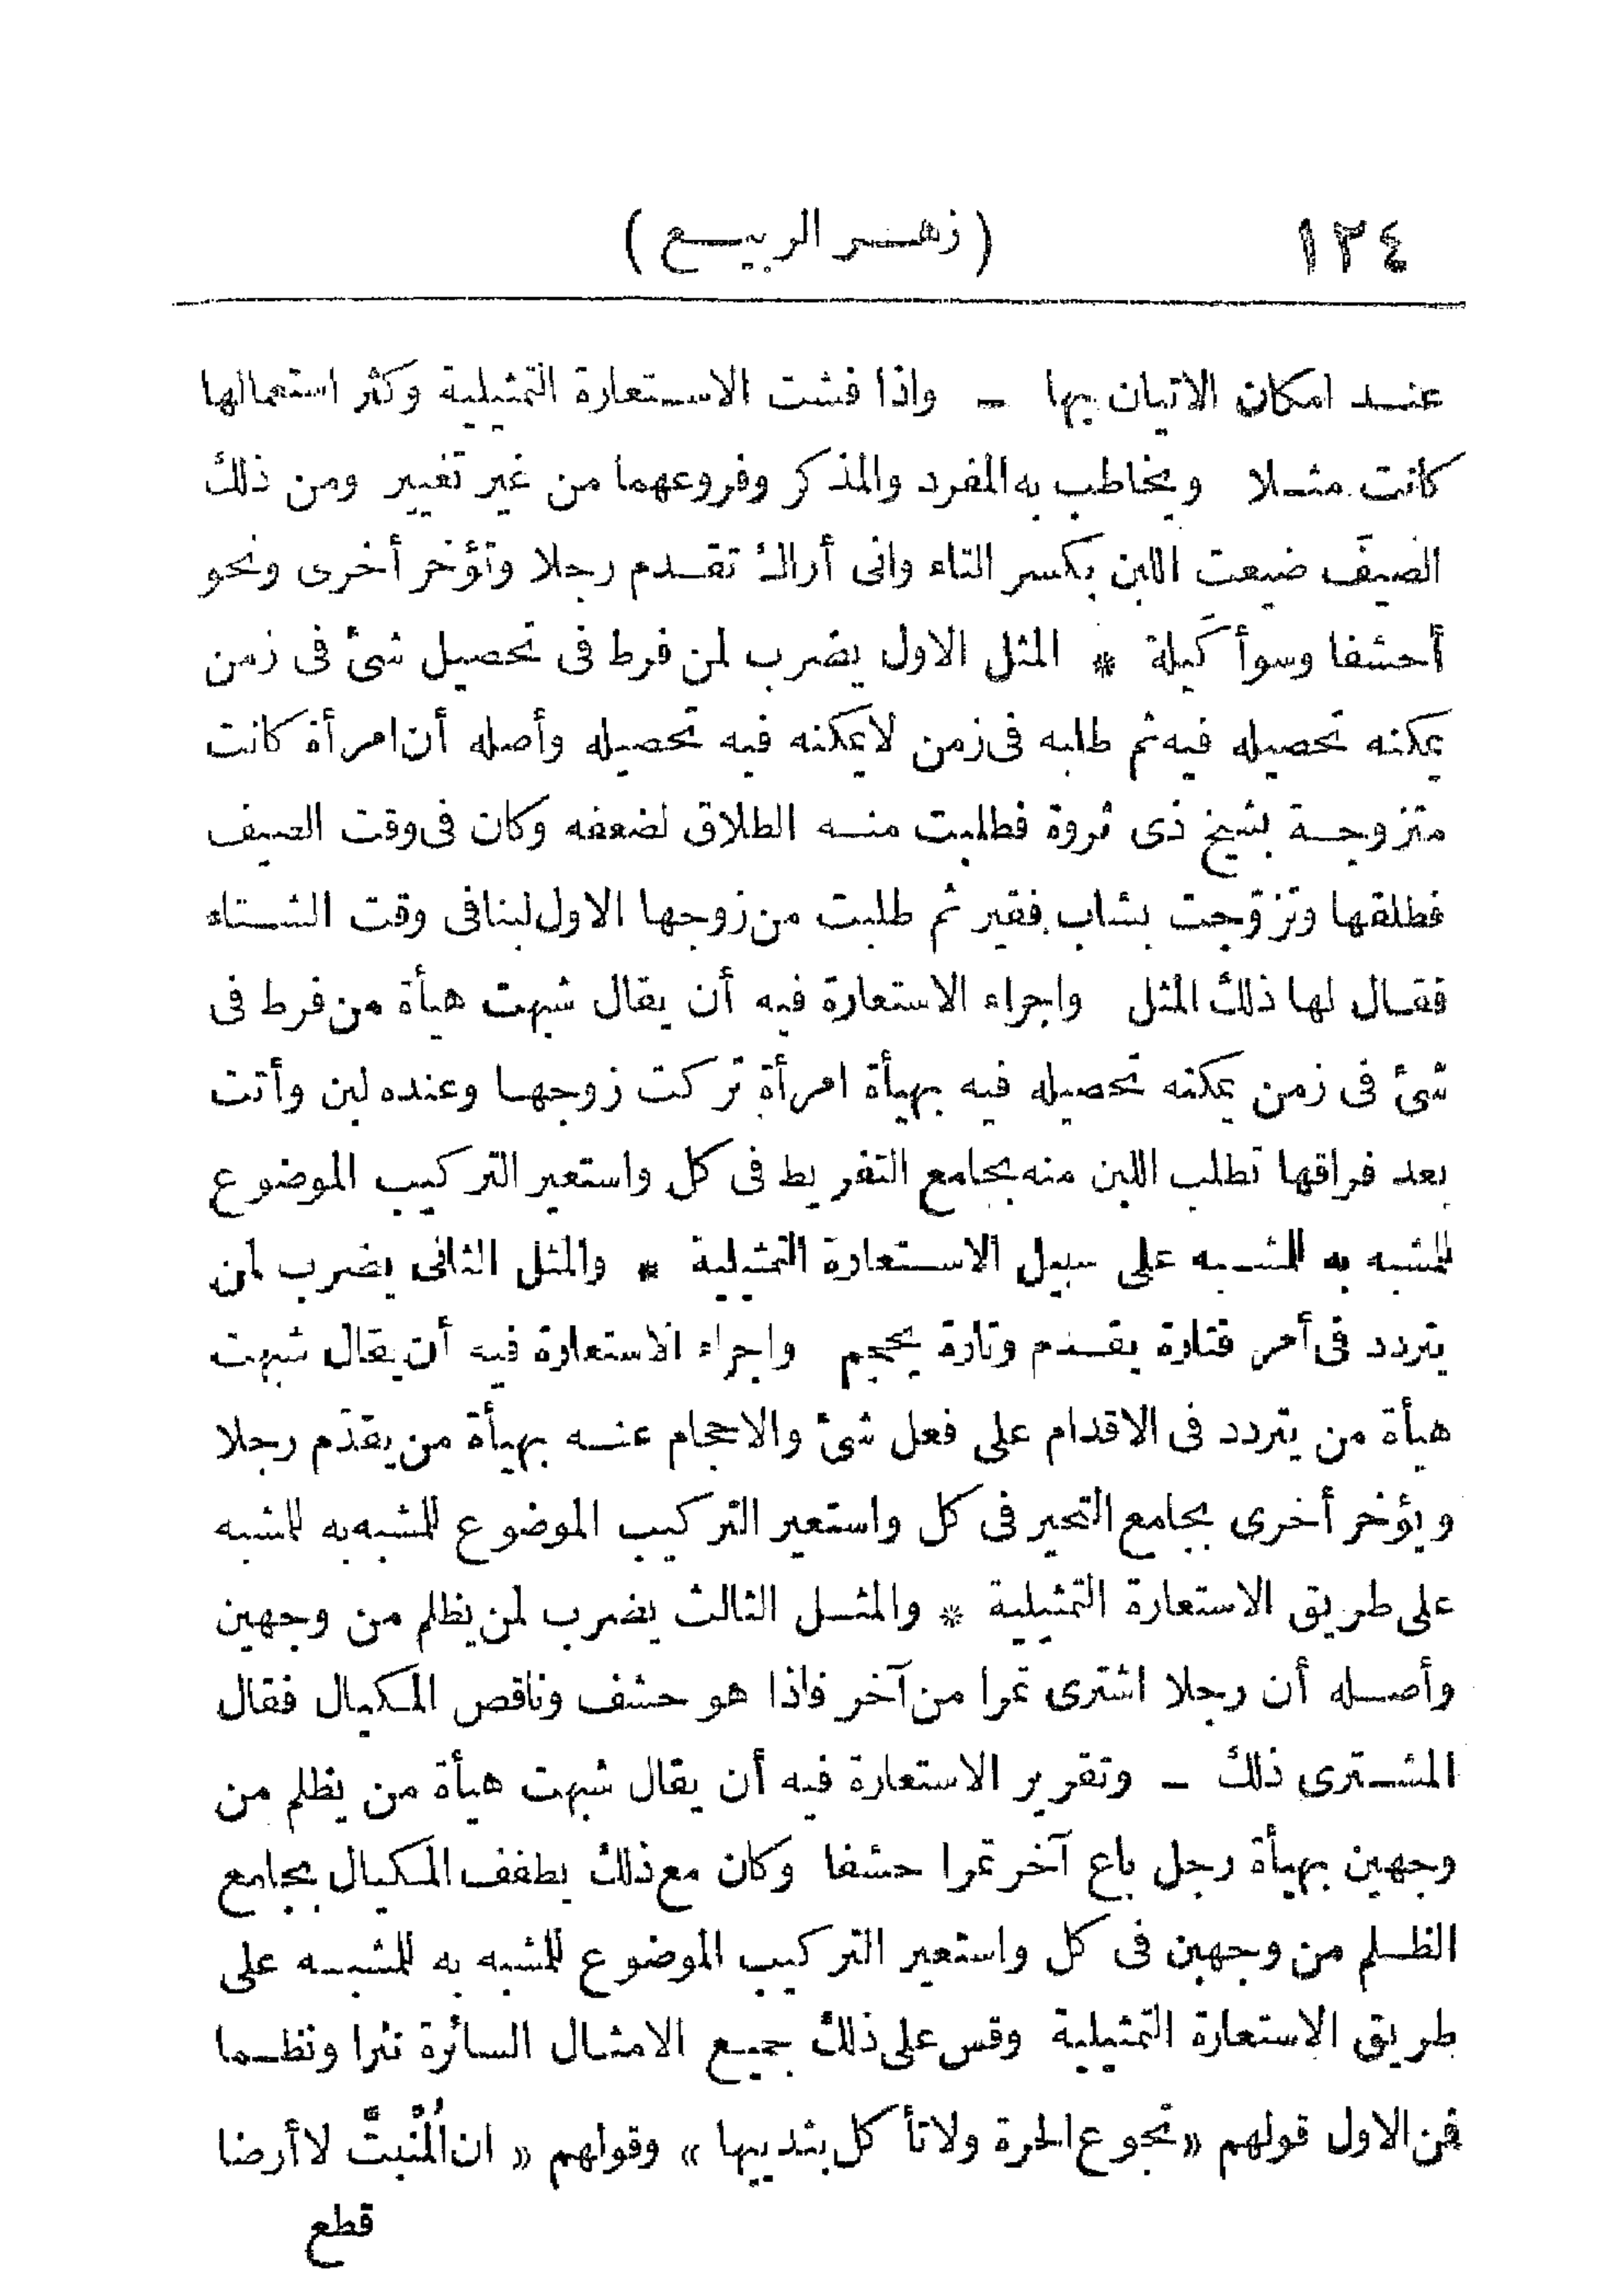 ١٣٤
(زهر الربيع)
عند امكان الاتيان بها ـ واذا فشت الاستعارة التمثيلية وكثر استعمالها
كانت مثلا ويخاطب به المفرد والمذكر وفروعهما من غير تغيير ومن ذلك
الصيفَ ضيعت اللبن بكسر التاء وانى أراك تقدم رجلا وتؤخر أخرى ونحو
أحشفا وسوأ كَيلة * المثل الاول يضرب لمن فرط فى تحصيل شئ فى زمن
يمكنه تحصيله فيه ثم طلبه فى زمن لايمكنه فيه تحصيله وأصله أن امرأة كانت
متزوجة بشيخ ذى ثروة فطلبت منه الطلاق لضعفه وكان فى وقت الصيف
فطلقها وتزوّجت بشاب فقير ثم طلبت من زوجها الاول لبنا فى وقت الشتاء
فقال لها ذلك المثل واجراء الاستعارة فيه أن يقال شبهت هيأة من فرط فى
شئ فى زمن يمكنه تحصيله فيه بهيأة امرأة تركت زوجها وعنده لبن وأتت
بعد فراقها تطلب اللبن منه بجامع التفريط فى كل واستعير التركيب الموضوع
للمشبه به للمشبه على سبيل الاستعارة التمثيلية * والمثل الثانى يضرب لمن
يتردد فى أمر فتارة يقدم وتارة يحجم واجراء الاستعارة فيه أن يقال شبهت
هيأة من يتردد فى الاقدام على فعل شئ والاحجام عنه بهيأة من يقدّم رجلا
ويؤخر أخرى بجامع التحير فى كل واستعير التركيب الموضوع للمشبه به للمشبه
على طريق الاستعارة التمثيلية * والمثل الثالث يضرب لمن يظلم من وجهين
وأصله أن رجلا اشترى تمرا من آخر فاذا هو حشف وناقص المكيال فقال
المشترى ذلك ـ وتقرير الاستعارة فيه أن يقال شبهت هيأة من يظلم من
وجهين بهيأة رجل باع آخر تمرا حشفا وكان مع ذلك يطفف المكيال بجامع
الظلم من وجهين فى كل واستعير التركيب الموضوع للمشبه به للمشبه على
طريق الاستعارة التمثيلية وقس على ذلك جميع الامثال السائرة نثرا ونظما
فمن الاول قولهم «تجوع الحرة ولا تأكل بثدييها» وقولهم « ان المُنْبتَّ لا أرضا
قطع